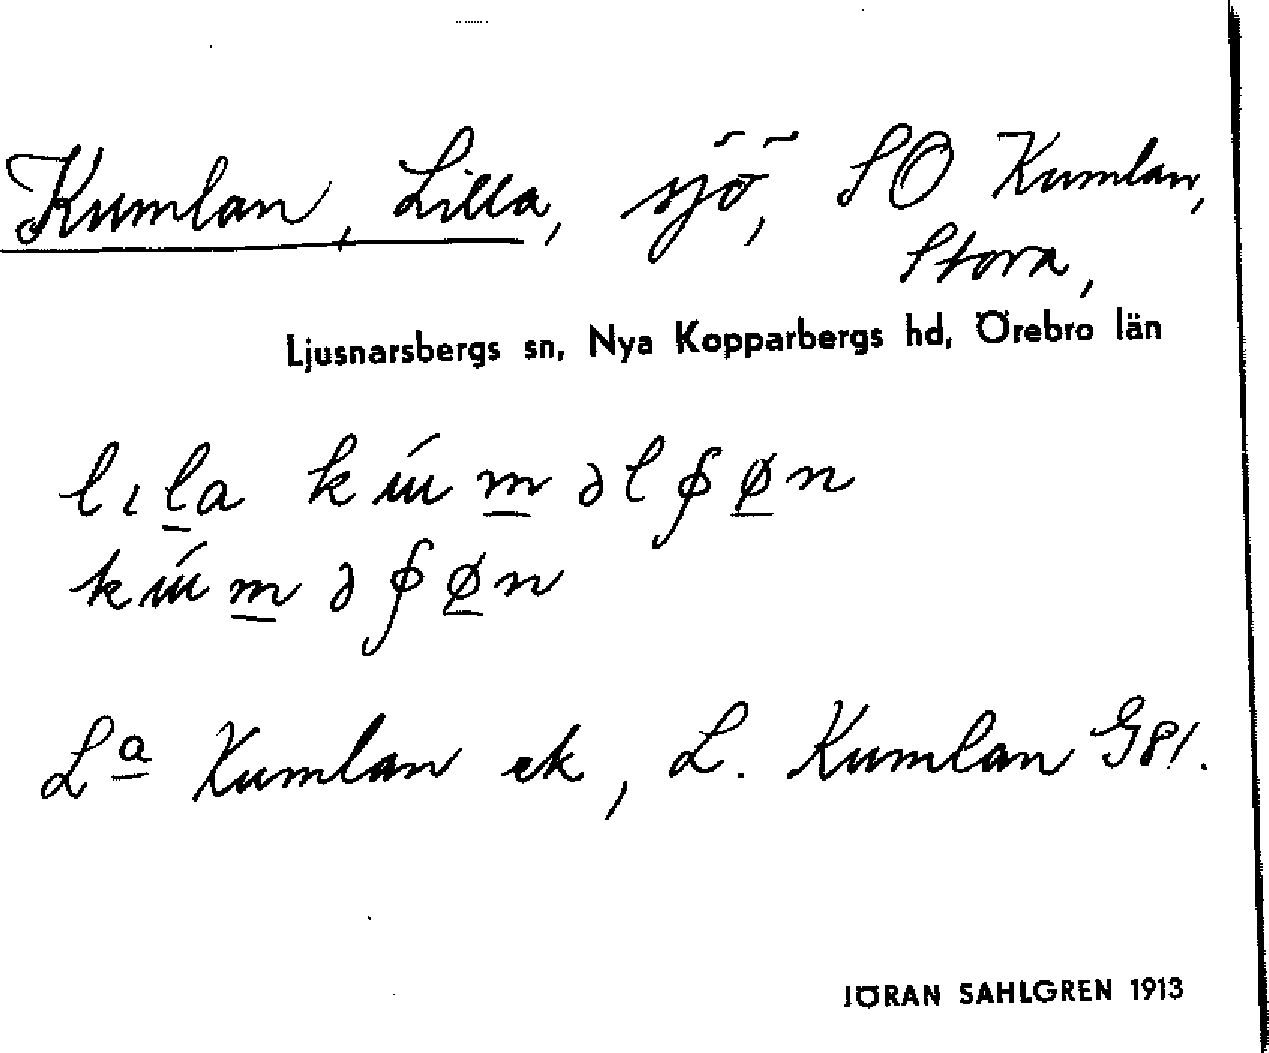 Kumlan, Lilla, sjö, SO Kumlan,
Stora,
Ljusnarsbergs sn, Nya Kopparbergs hd, Örebro län
lıla kúməlʃøn
kúməʃøn
La Kumlan ek, L. Kumlan G81.
JÖRAN SAHLGREN 1913